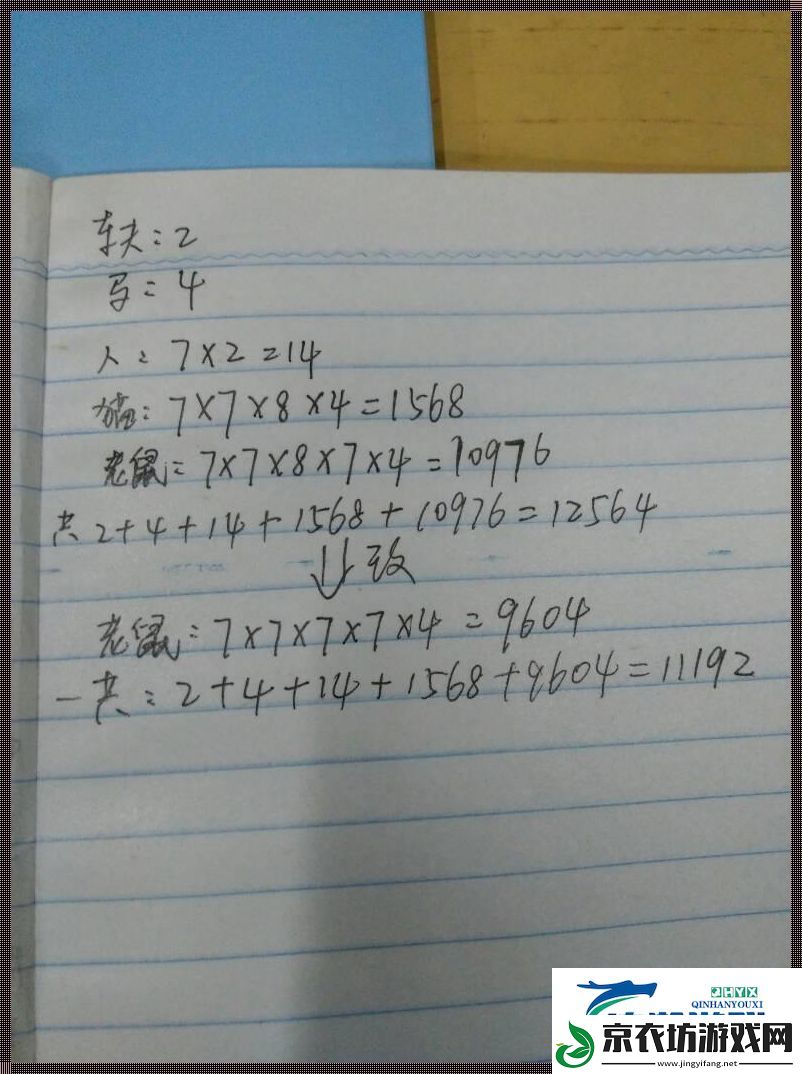 车夫:2
马:4
人:7×2=14
猫:7×7×8×4=1568
老鼠:7×7×8×7×4=10976
共 2+4+14+1568+10976=12564
改
老鼠:7×7×7×7×4=9604
一共:2+4+14+1568+9604=11192
QHYX
QINHANYOUXI
京衣坊游戏网
www.jingyifang.net